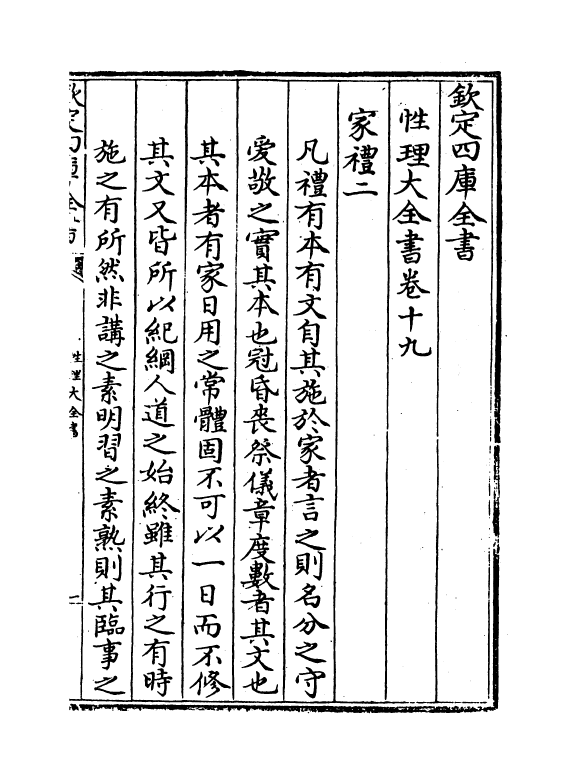 欽定四庫全書
性理大全書卷十九
家禮二
凡禮有本有文自其施於家者言之則名分之守
愛敬之實其本也冠昏喪祭儀章度數者其文也
其本者有家日用之常體固不可以一日而不修
其文又皆所以紀綱人道之始終雖其行之有時
施之有所然非講之素明習之素熟則其臨事之
性理大全書
一